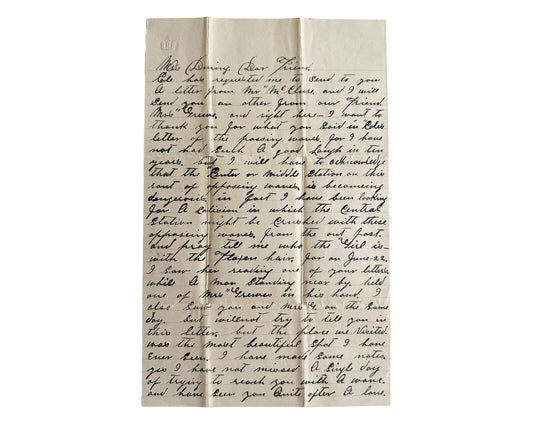 Dear Friend.
has requested me to send to you
A letter from Mr. McClure, and I will
send you an other from our Friend
Mrs Grewes, and right here I want to
thank you for what you said in
letter of the passing waves, for I have
not had such A good laugh in ten
years, but I will have to acknowledge
that the Center or Middle Station on this
rout of opposing waves is becomeing
dangerous, in fact I have been looking
for A Colivion in which the Central
Station might be Crushed with these
opposing waves. from the out post.
and pray tell me who the "Girl is
with the Flaxen hair, for on June-22.
I saw her reading one of your letters
while A Man Standing near by held
one of Mrs "Grewes in his hand. I
also saw you and Mrs G. on the same
day. but will not try to tell you in
this letter. but the place we Visited
was the most beautiful spot I have
Ever seen. I have made some notes
yes I have not missed A Single day
of trying to reach you with A wave.
and have seen you quite often A lone.